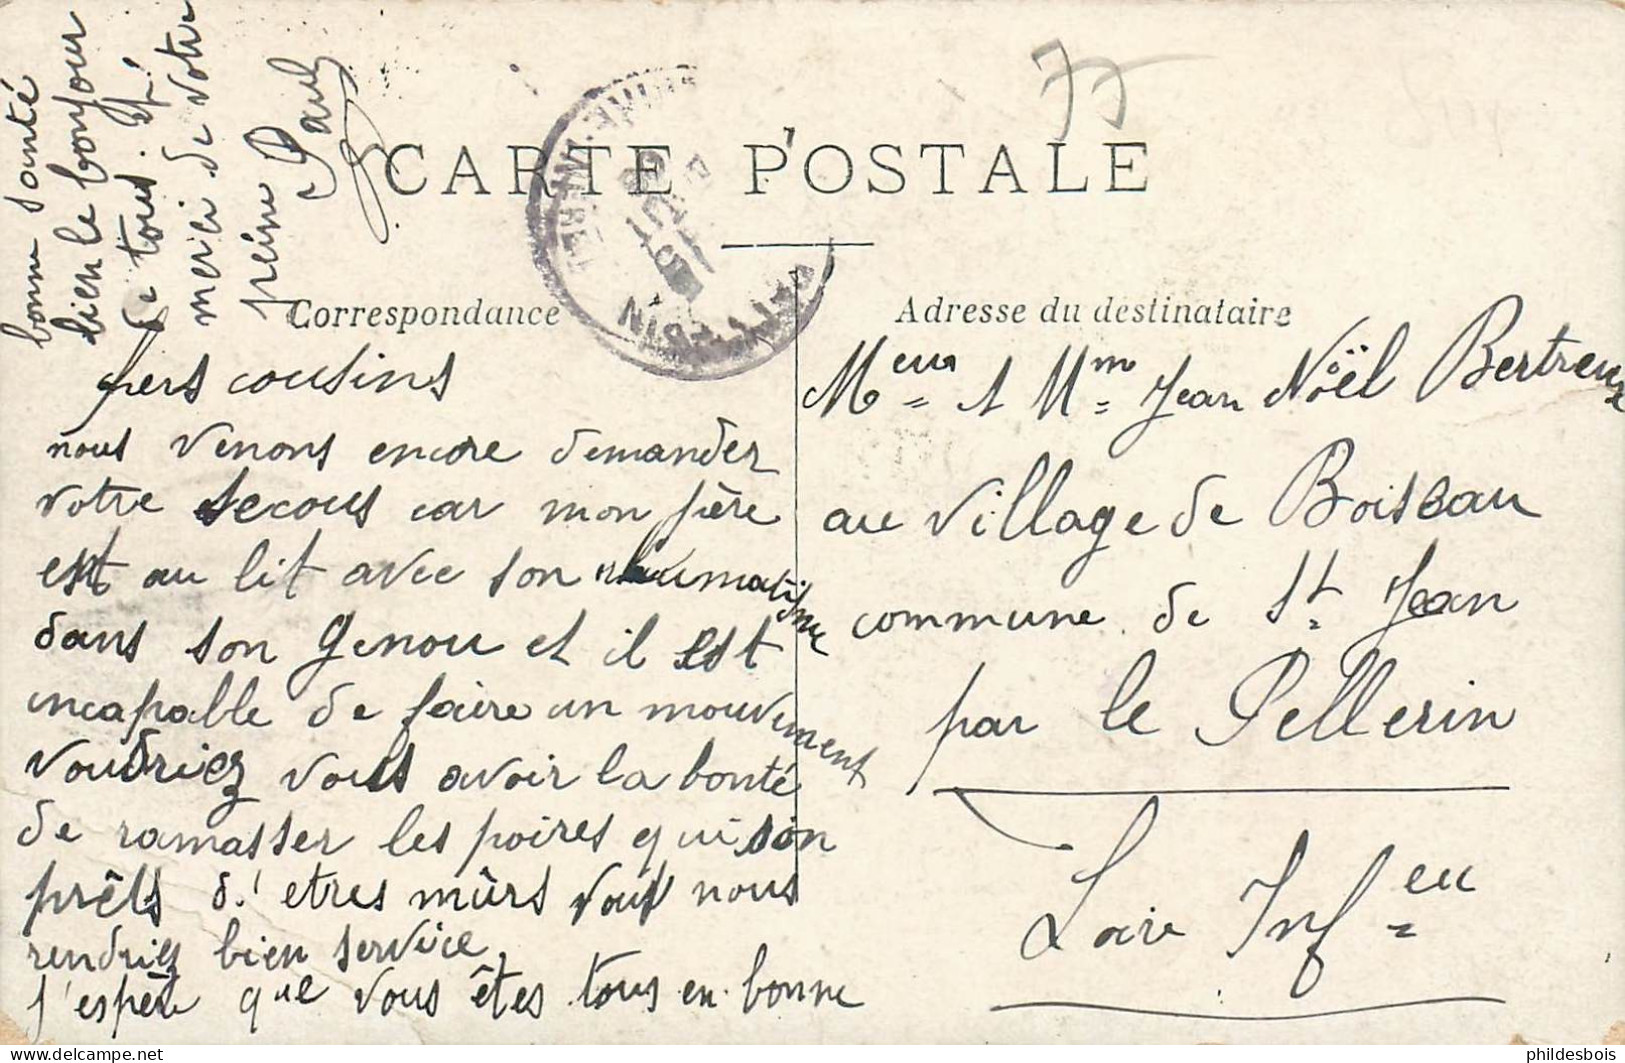 CARTE POSTALE
Correspondance
Chers cousins
nous venons encore demander
votre secous car mon père
est au lit avec son rhumatisme
dans son genou et il est
incapable de faire un mouvement
voudriez vous avoir la bonté
de ramasser les poires qui son
prêts d'etres mûrs vous nous
rendriez bien service
j'espère que vous êtes tous en bonne
bonne santé
bien le bonjour
de tous.
merci de votre
peine Paul
Adresse du destinataire
Meur & Mme Jean Noël Bertreux
au village de Boiseau
commune de St Jean
par le Pellerin
Loire Infeu
77
phildesbois